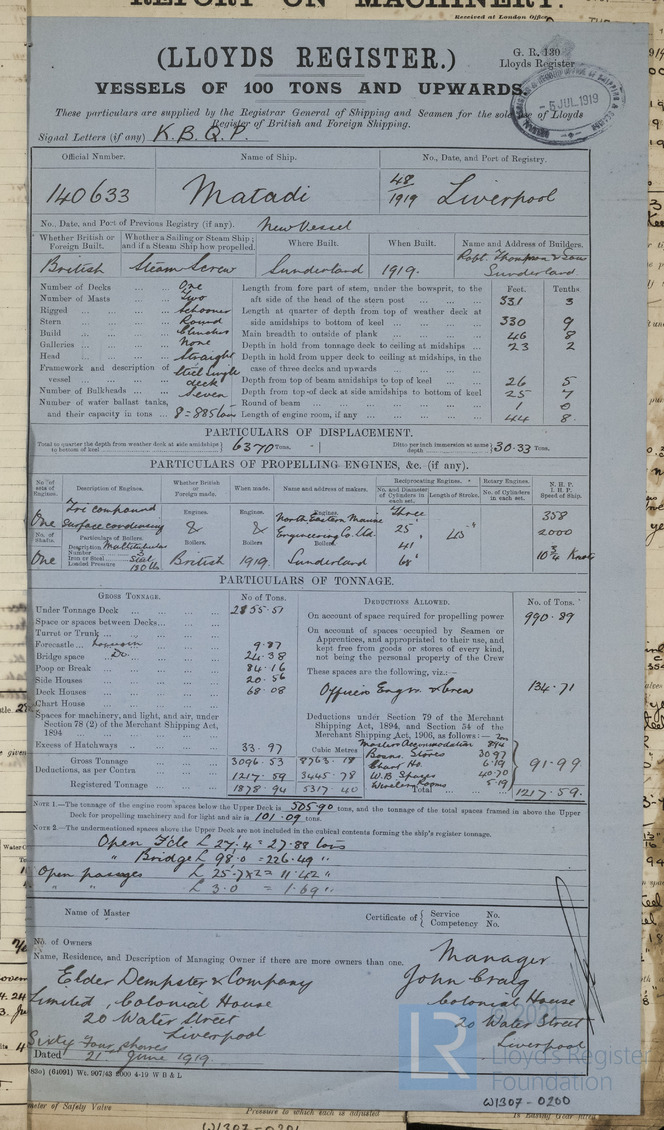 REPORT ON MACHINERY.
Received at London Office
(LLOYDS REGISTER.)
G. R. 130
Lloyds Register
VESSELS OF 100 TONS AND UPWARDS.
-6 JUL 1919
These particulars are supplied by the Registrar General of Shipping and Seamen for the sole use of Lloyds
Register of British and Foreign Shipping.
Signal Letters (if any) K.B.Q.P.
Official Number. Name of Ship. No., Date, and Port of Registry.
140633 Matadi 48/1919 Liverpool
No., Date, and Port of Previous Registry (if any). New Vessel
Whether British or Foreign Built. Whether a Sailing or Steam Ship; and if a Steam Ship how propelled. Where Built. When Built. Name and Address of Builders.
British Steam Screw Sunderland 1919. Robt. Thompson & Sons Sunderland
Number of Decks One
Number of Masts Two
Rigged Schooner
Stern Round
Build Clincher
Galleries None
Head Straight
Framework and description of vessel Steel Single deck
Number of Bulkheads Seven
Number of water ballast tanks, and their capacity in tons 8 = 885 tons
Feet. Tenths.
Length from fore part of stem, under the bowsprit, to the aft side of the head of the stern post 331 3
Length at quarter of depth from top of weather deck at side amidships to bottom of keel 330 9
Main breadth to outside of plank 46 8
Depth in hold from tonnage deck to ceiling at midships 23 2
Depth in hold from upper deck to ceiling at midships, in the case of three decks and upwards
Depth from top of beam amidships to top of keel 26 5
Depth from top of deck at side amidships to bottom of keel 25 7
Round of beam 1 0
Length of engine room, if any 44 8
PARTICULARS OF DISPLACEMENT.
Total to quarter the depth from weather deck at side amidships to bottom of keel } 6370 Tons. Ditto per inch immersion at same depth } 30.33 Tons.
PARTICULARS OF PROPELLING ENGINES, &c. (if any).
No. of sets of Engines. Description of Engines. Whether British or Foreign made. When made. Name and address of makers. Reciprocating Engines. Rotary Engines. N. H. P.
No. and Diameter of Cylinders in each set. Length of Stroke. No. of Cylinders in each set. I. H. P. Speed of Ship.
One Tri compound Surface condensing Engines. & Engines. & Engines. North Eastern Marine Engineering Co. Ltd. Three 25" 41" 68" 45" 358 2000 10 3/4 Knots
No. of Shafts. Particulars of Boilers. Boilers. Boilers. Boilers.
One Description Multitubular British 1919. Sunderland
Number 3
Iron or Steel Steel
Loaded Pressure 180 lbs
PARTICULARS OF TONNAGE.
GROSS TONNAGE. No of Tons. DEDUCTIONS ALLOWED. No. of Tons.
Under Tonnage Deck 2855.51
Space or spaces between Decks
Turret or Trunk
Forecastle 9.87
Bridge space Do. 24.38
Poop or Break 84.16
Side Houses 20.56
Deck Houses 68.08
Chart House
Spaces for machinery, and light, and air, under Section 78 (2) of the Merchant Shipping Act, 1894
Excess of Hatchways 33.97
Cubic Metres
Gross Tonnage 3096.53 8763.18
Deductions, as per Contra 1217.59 3445.78
Registered Tonnage 1878.94 5317.40
On account of space required for propelling power 990.89
On account of spaces occupied by Seamen or Apprentices, and appropriated to their use, and kept free from goods or stores of every kind, not being the personal property of the Crew
These spaces are the following, viz.:—
Officers Engrs. & Crew 134.71
Deductions under Section 79 of the Merchant Shipping Act, 1894, and Section 54 of the Merchant Shipping Act, 1906, as follows:—
Masters Accommodation 8.94
Boatns. Stores 30.97
Chart Ho. 6.19
W.B. Spaces 40.70
Wireless Rooms 5.19
91.99
Total 1217.59.
NOTE 1.—The tonnage of the engine room spaces below the Upper Deck is 505.90 tons, and the tonnage of the total spaces framed in above the Upper
Deck for propelling machinery and for light and air is 101.09 tons.
NOTE 2.—The undermentioned spaces above the Upper Deck are not included in the cubical contents forming the ship's register tonnage.
Open F'cle L 27.4 = 27.88 tons
" Bridge L 98.0 = 226.49 "
Open passages L 25.7x2 = 11.42 "
" " L 3.0 = 1.69 "
Name of Master Certificate of { Service No. Competency No.
No. of Owners
Name, Residence, and Description of Managing Owner if there are more owners than one.
Elder Dempster & Company
Limited, Colonial House
20 Water Street
Liverpool
Sixty Four shares
Manager
John Craig
Colonial House
20 Water Street
Liverpool
Dated 21st June 1919.
(64091) Wt. 907/43 2000 4-19 W D & L
© 2021
LR
Lloyd's Register
Foundation
W1307-0200
Pressure to which each is adjusted
W1307-0201